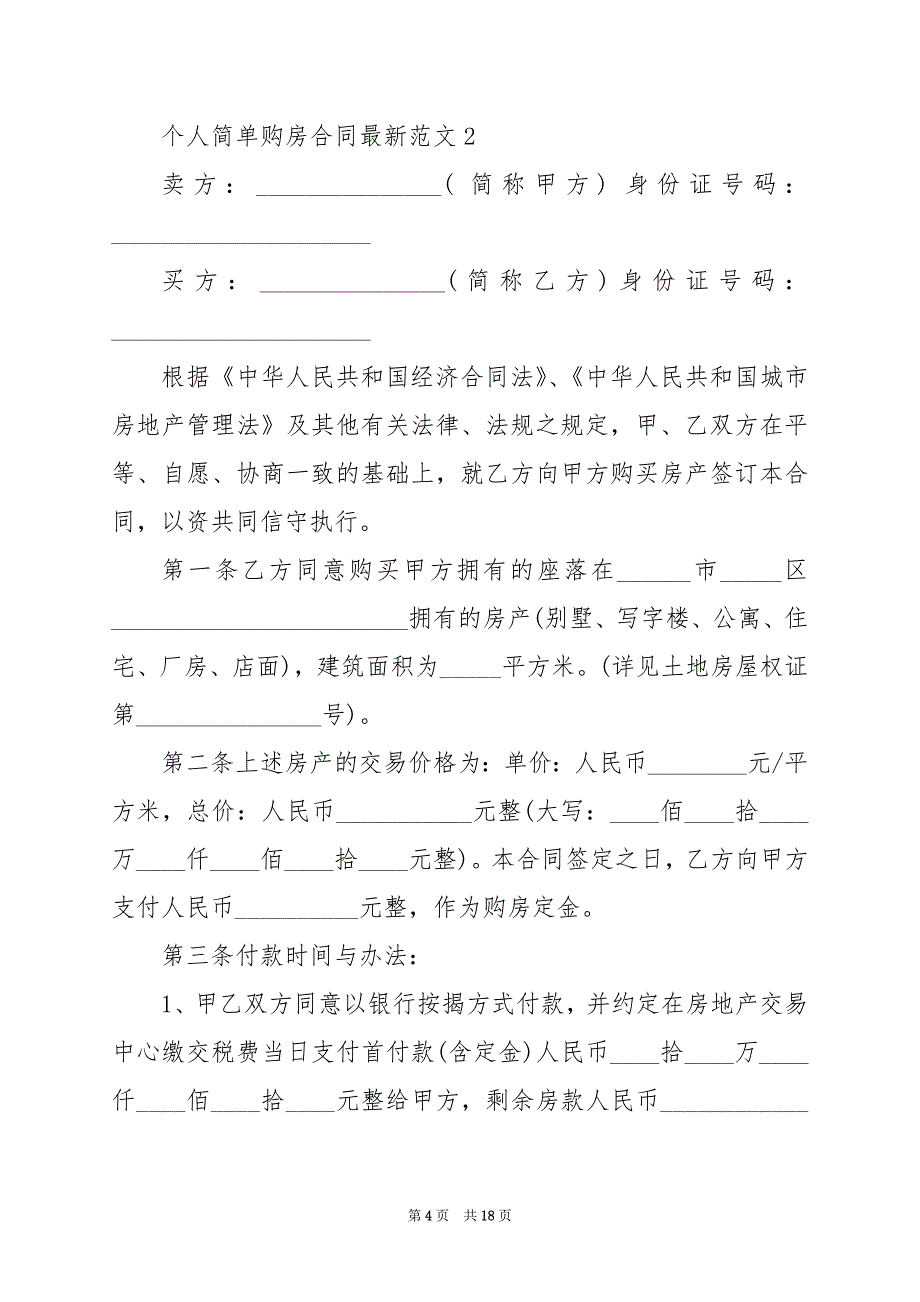 个人简单购房合同最新范文2
卖方：_______________(简称甲方)身份证号码：
_____________________
买方：_______________(简称乙方)身份证号码：
_____________________
根据《中华人民共和国经济合同法》、《中华人民共和国城市
房地产管理法》及其他有关法律、法规之规定，甲、乙双方在平
等、自愿、协商一致的基础上，就乙方向甲方购买房产签订本合
同，以资共同信守执行。
第一条乙方同意购买甲方拥有的座落在______市_____区
________________________拥有的房产(别墅、写字楼、公寓、住
宅、厂房、店面)，建筑面积为_____平方米。(详见土地房屋权证
第_______________号)。
第二条上述房产的交易价格为：单价：人民币________元/平
方米，总价：人民币___________元整(大写：____佰____拾____
万____仟____佰____拾____元整)。本合同签定之日，乙方向甲方
支付人民币__________元整，作为购房定金。
第三条付款时间与办法：
1、甲乙双方同意以银行按揭方式付款，并约定在房地产交易
中心缴交税费当日支付首付款(含定金)人民币____拾____万____
仟____佰____拾____元整给甲方，剩余房款人民币____________
第 4 页 共 18 页